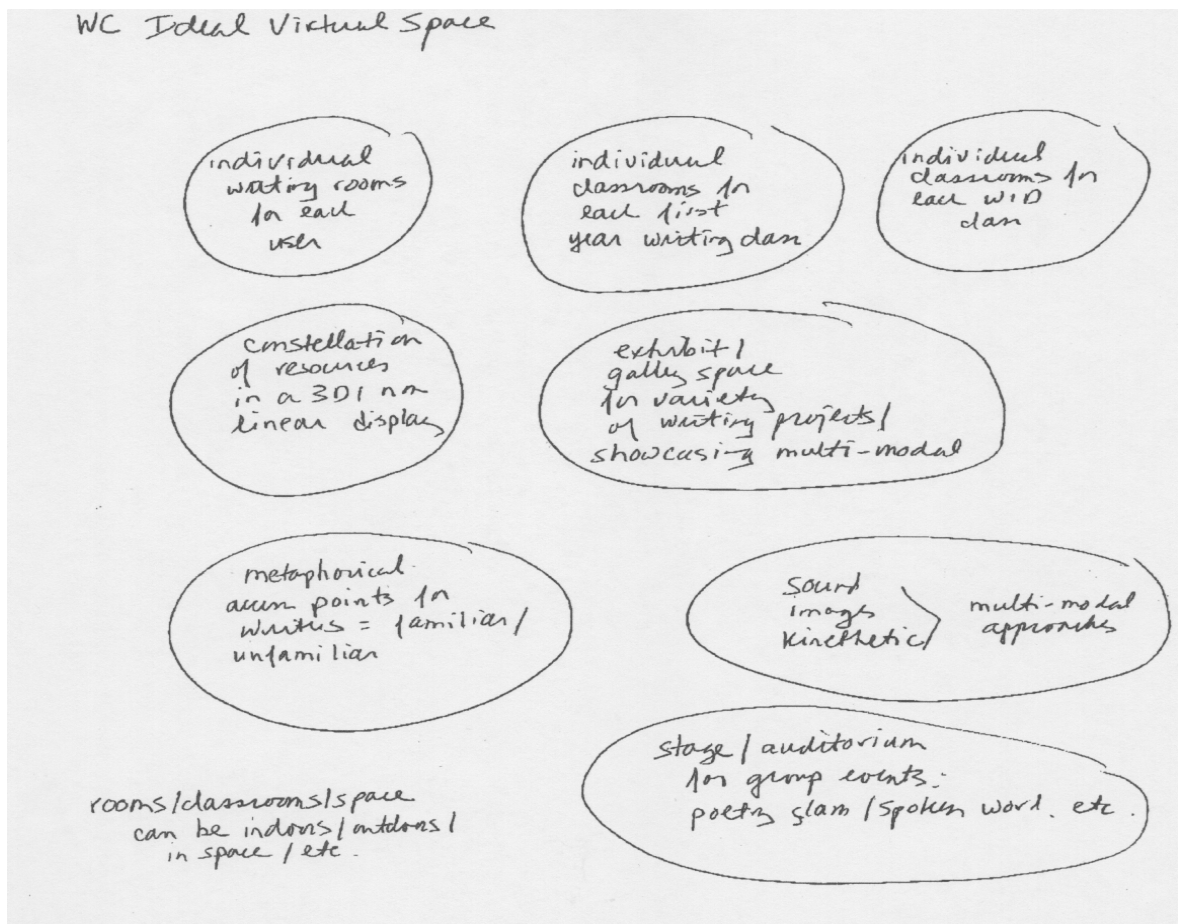 WC Ideal Virtual Space
individual
writing rooms
for each
user
individual
classrooms for
each first
year writing class
individual
classrooms for
each WID
class
constellation
of resources
in a 3D/non
linear display
exhibit/
gallery space
for variety
of writing projects/
showcasing multi-modal
metaphorical
access points for
writers = familiar/
unfamiliar
sound
images
kinethetic
multi-modal
approaches
stage/auditorium
for group events:
poetry slam/spoken word. etc.
rooms/classrooms/space
can be indoors/outdoors/
in space/etc.